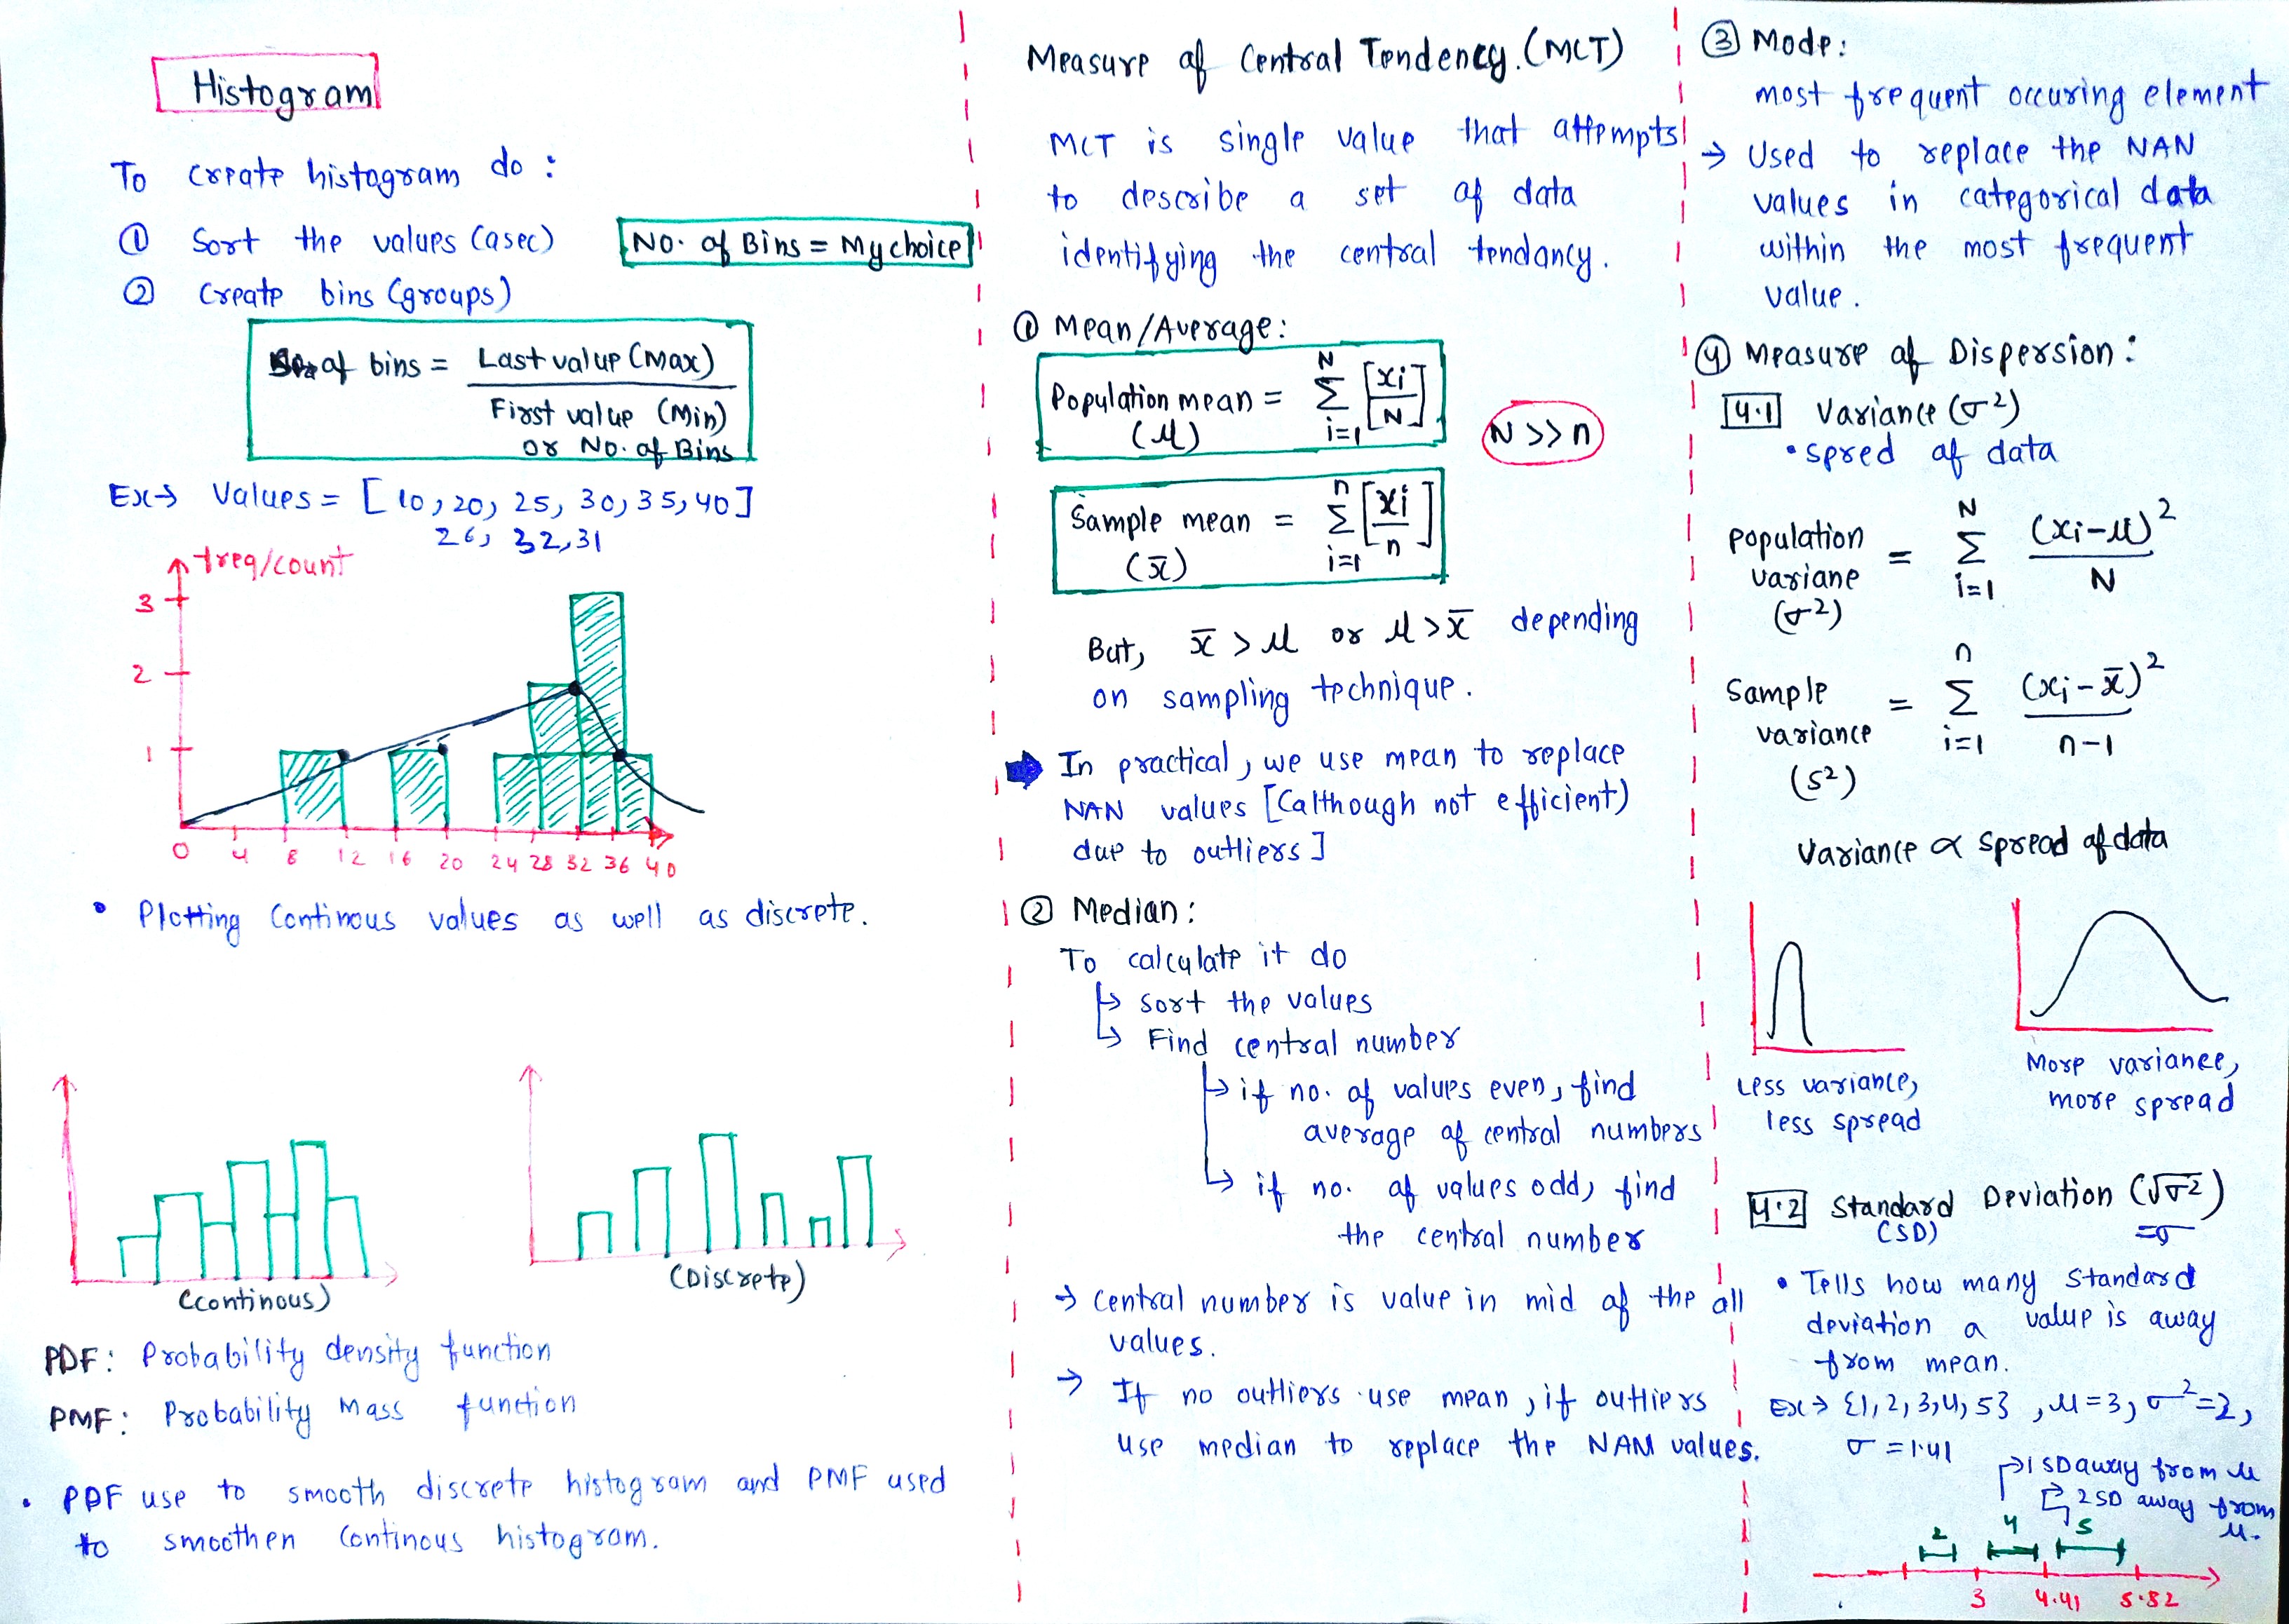 Histogram
To create histogram do :
① Sort the values (asec)
No. of Bins = My choice
② Create bins (groups)
of bins = Last value (Max)
First value (Min)
or No. of Bins
Ex→ Values = [10, 20, 25, 30, 35, 40]
26, 32, 31
freq/count
3
2
1
0 4 8 12 16 20 24 28 32 36 40
• Plotting Continous values as well as discrete.
(continous)
(Discrete)
PDF: Probability density function
PMF: Probability Mass function
• PDF use to smooth discrete histogram and PMF used
to smoothen Continous histogram.
Measure of Central Tendency. (MCT)
MCT is single value that attempts
to describe a set of data
identifying the central tendancy.
① Mean/Average:
Population mean = N Σ i=1 [xi/N]
(μ)
N >> n
Sample mean = n Σ i=1 [xi/n]
(x̄)
But, x̄ > μ or μ > x̄ depending
on sampling technique.
In practical, we use mean to replace
NAN values [(although not efficient)
due to outliers]
② Median:
To calculate it do
↳ Sort the values
↳ Find central number
↳ if no. of values even, find
average of central numbers
↳ if no. of values odd, find
the central number
→ Central number is value in mid of the all
values.
→ If no outliers use mean, if outliers
use median to replace the NAN values.
③ Mode:
most frequent occuring element
→ Used to replace the NAN
values in categorical data
within the most frequent
value.
④ Measure of Dispersion:
4.1 Variance (σ²)
• spred of data
Population
variane = N Σ i=1 (xi-μ)²/N
(σ²)
Sample
variance = n Σ i=1 (xi-x̄)²/n-1
(s²)
Variance ∝ Spread of data
Less variance,
less spread
More variance,
more spread
4.2 Standard Deviation (√σ²)
(SD) =σ
• Tells how many Standard
deviation a value is away
from mean.
Ex→ {1, 2, 3, 4, 5}, μ=3, σ²=2,
σ = 1.41
→1 SD away from μ
→ 2 SD away from
μ.
2 4 5
3 4.41 5.82